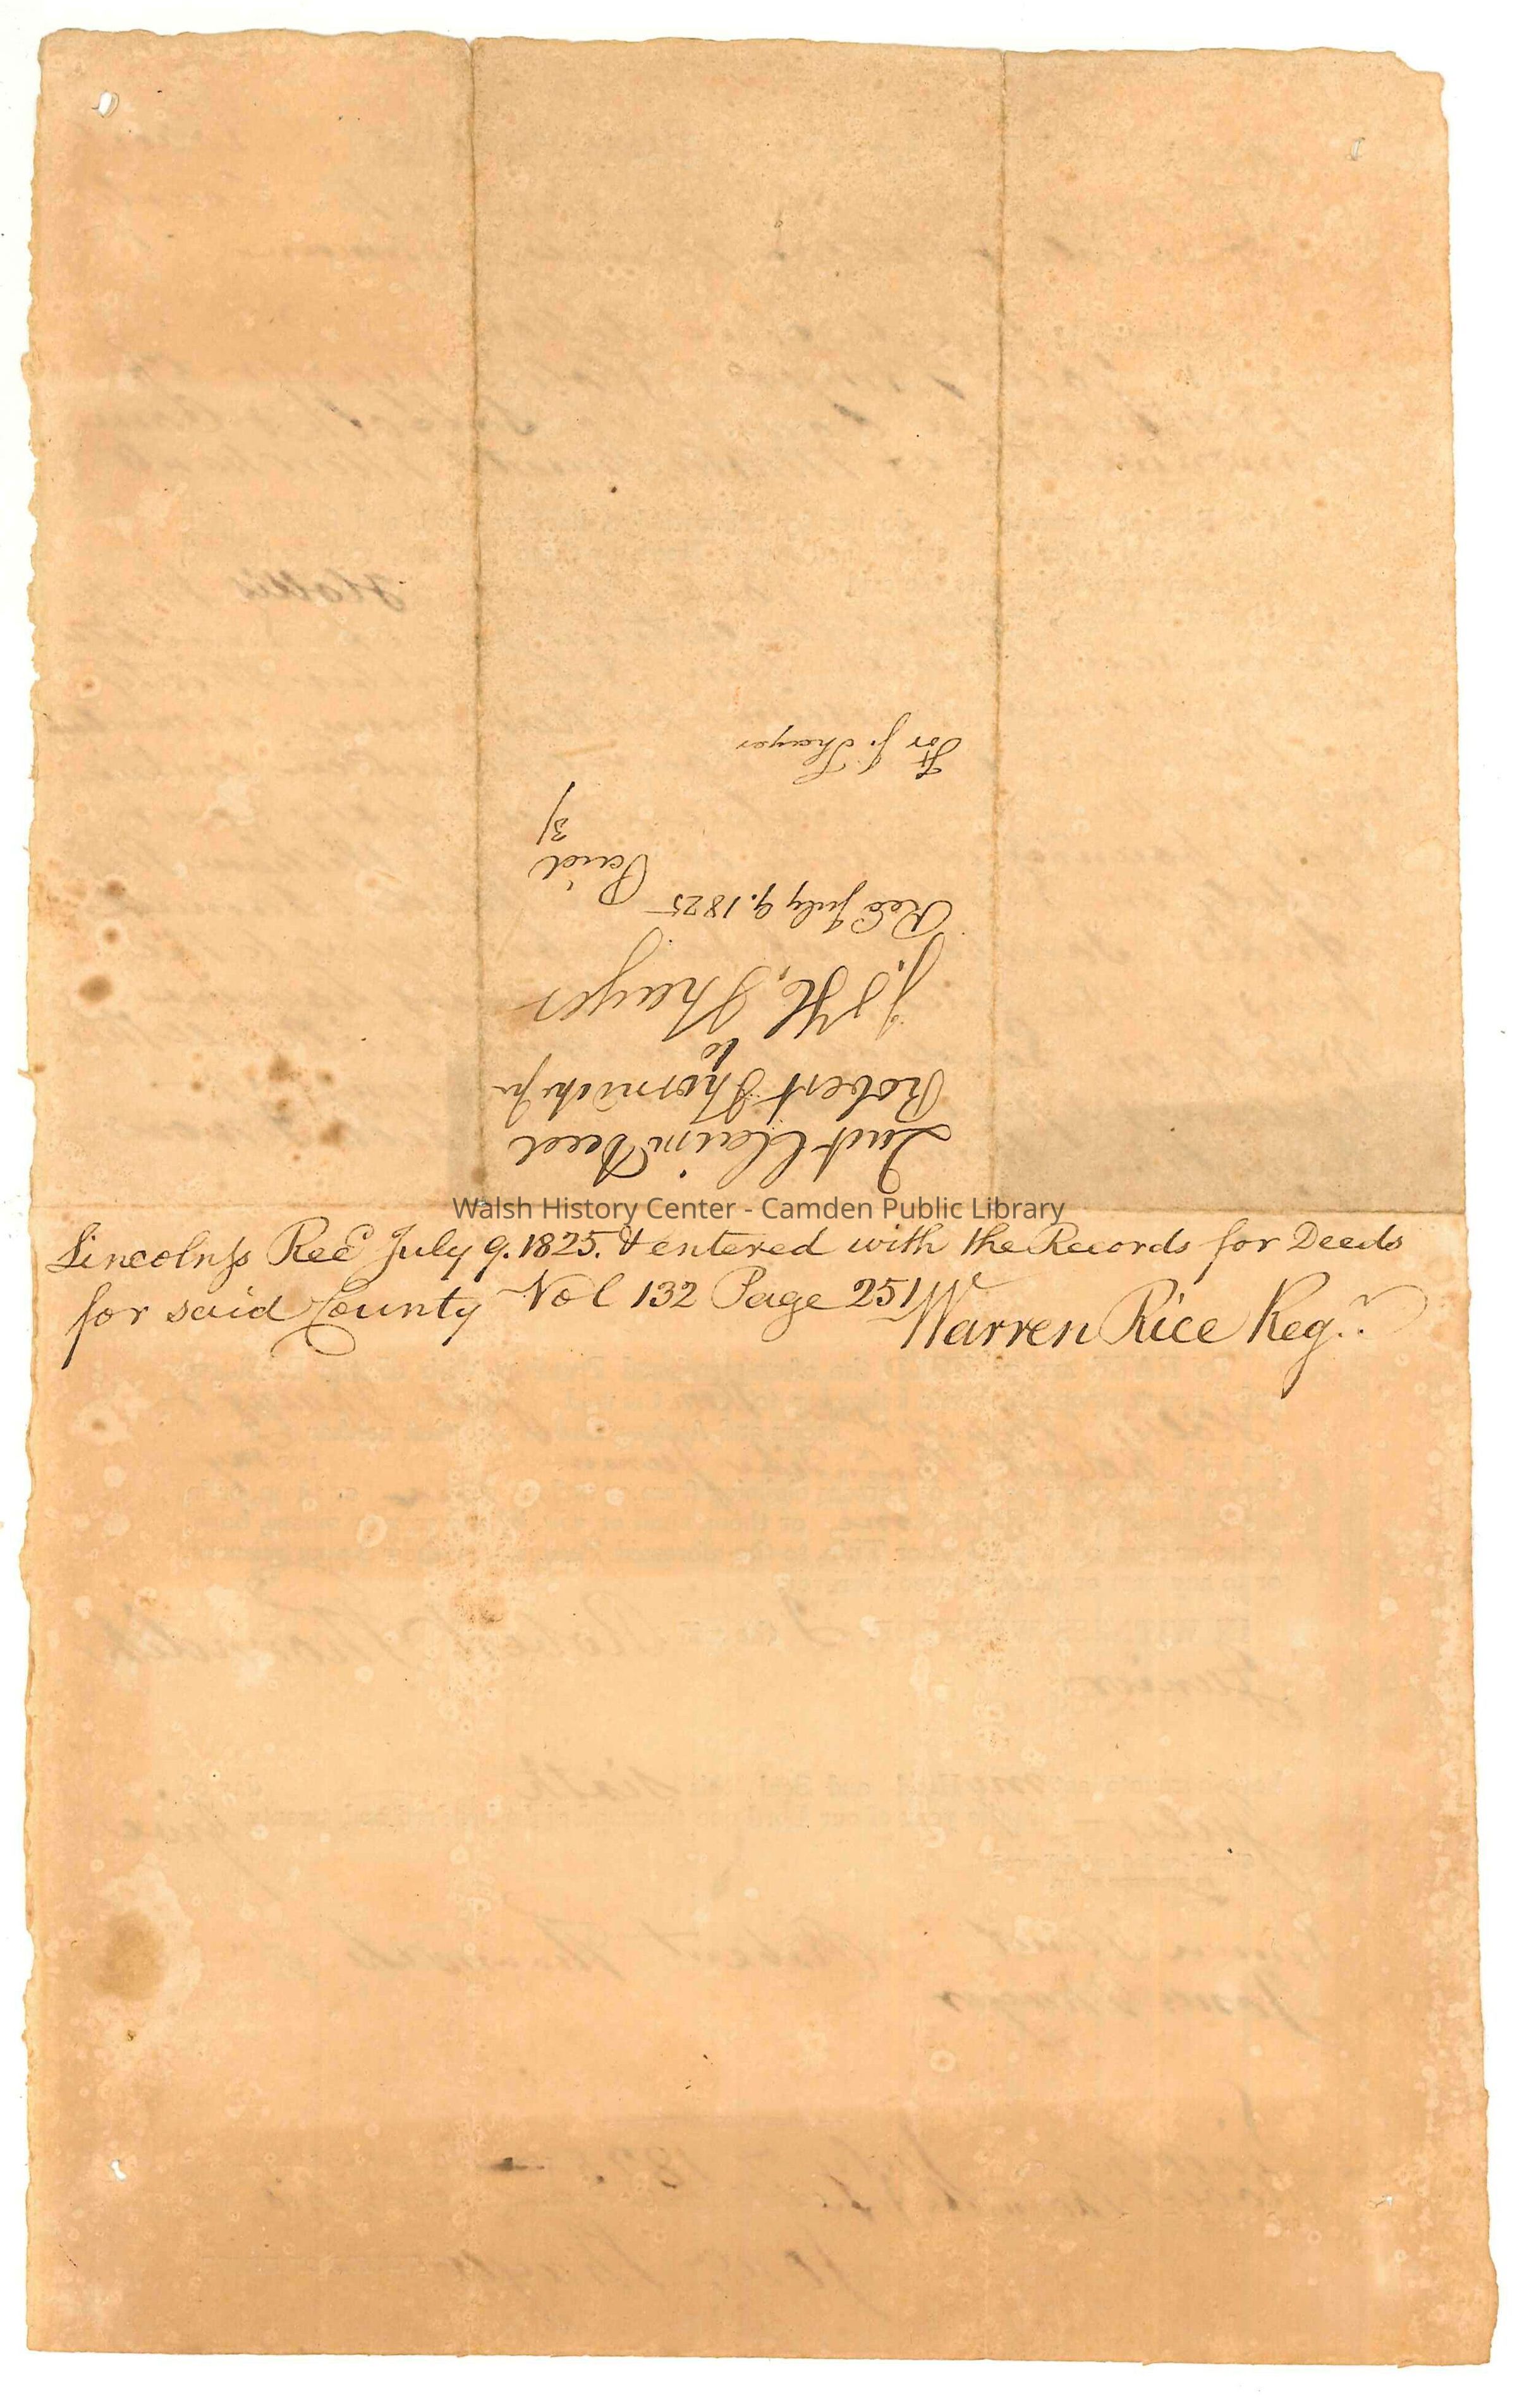 Quit Claim Deed
Robert Thorndike Jr
to
J. & H. Thayer
Recd July 9. 1825
Paid
3/
For J. Thayer
Walsh History Center - Camden Public Library
Lincoln Ss Recd July 9. 1825. & entered with the Records for Deeds
for said County Vol 132 Page 251
Warren Rice Regr.